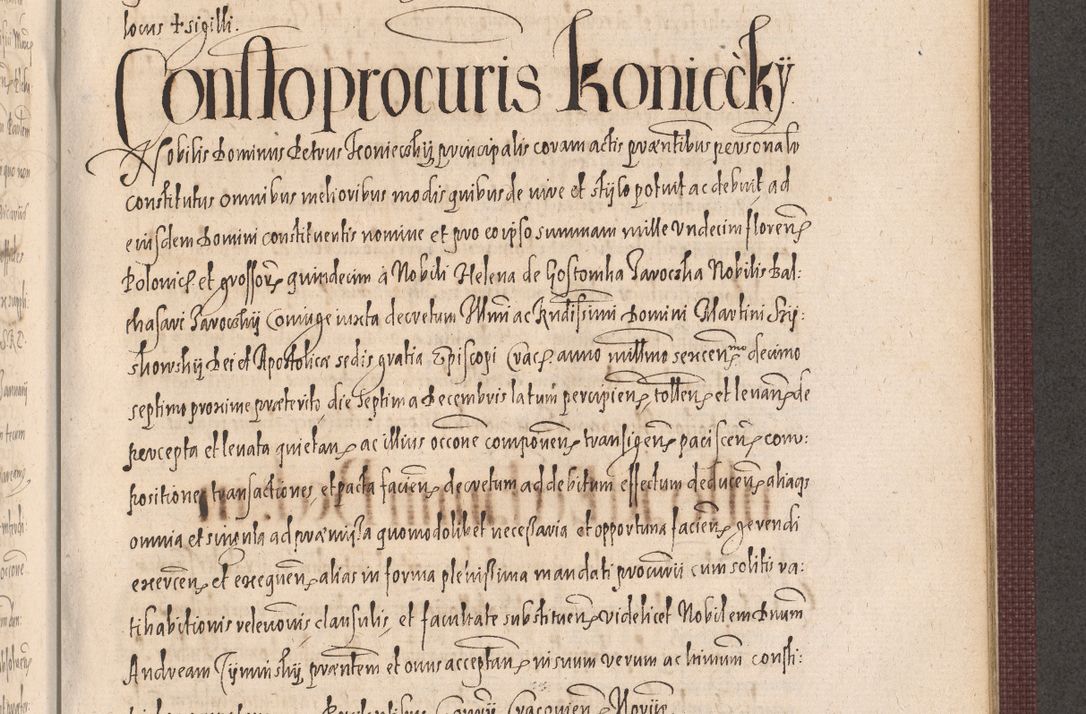 locus + sigilli.
Constoprocuris Koniecky
Nobilis Dominus Petrus Koniecskij principalis coram actis præntibus personalr
constitutus omnibus melioribus modis quibus de iure et stylo potuit ac debuit, ad
eiusdem Domini constituentis nomine et pro eo ipso summam mille undecim floren
Polonic et grossor quindecim à Nobili Helena de Gostomka Jarocska Nobilis Bal:
thasari Jarocskij Coniuge iuxta decretum Illmi ac Rndissimi Domini Martini Szy:
skowskij Dei et Apostolica sedis gratia Episcopi Crac anno millmo sexcenmo decimo
septimo proxime præterito, die septima Decembris latum percipien tollen et levan de
percepta et levata quietan ac illius occone componen transigen paciscen com:
positione transactiones, et pacta facien decretum ad debitum effectum deducen aliaqz
omnia et singula ad præmissa quomodolibet necessaria et opportuna facien gerendi
exercen et exequen alias in forma plenissima mandati procurii cum solitis ra:
tihabitionis relevonis clausulis, et facultate substituen videlicet Nobilem Dnum
Andream Tyminskij præntem et onus acceptan in suum verum ac ltimum consti:
Cracovien Novin